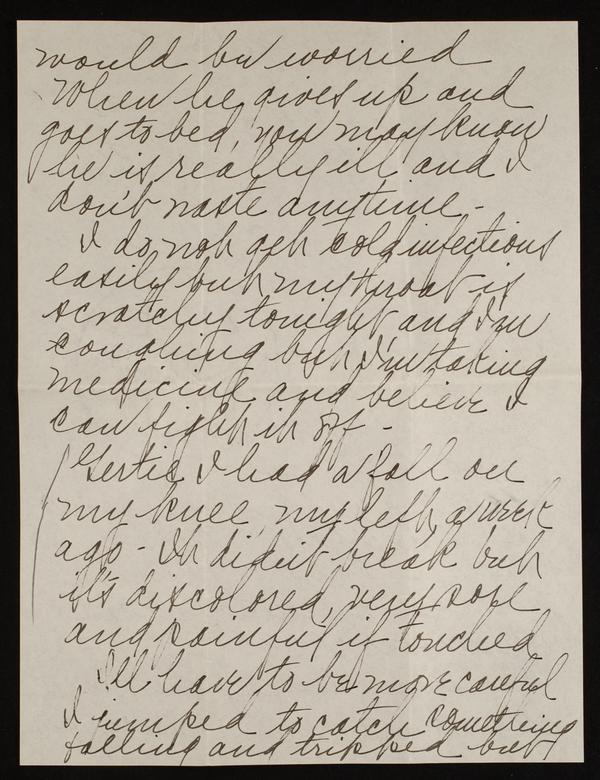 would be worried
When he gives up and
goes to bed, you may know
he is really ill and I
don't waste anytime -
I do not get cold infections
easily but my throat is
scratchy tonight and I'm
coughing but I'm taking
medicine and believe I
can fight it off -
Gertie I had a fall on
my knee, my left, a week
ago - It didn't break but
it's discolored, very sore
and painful if touched
I'll have to be more careful
I jumped to catch something
falling and tripped but